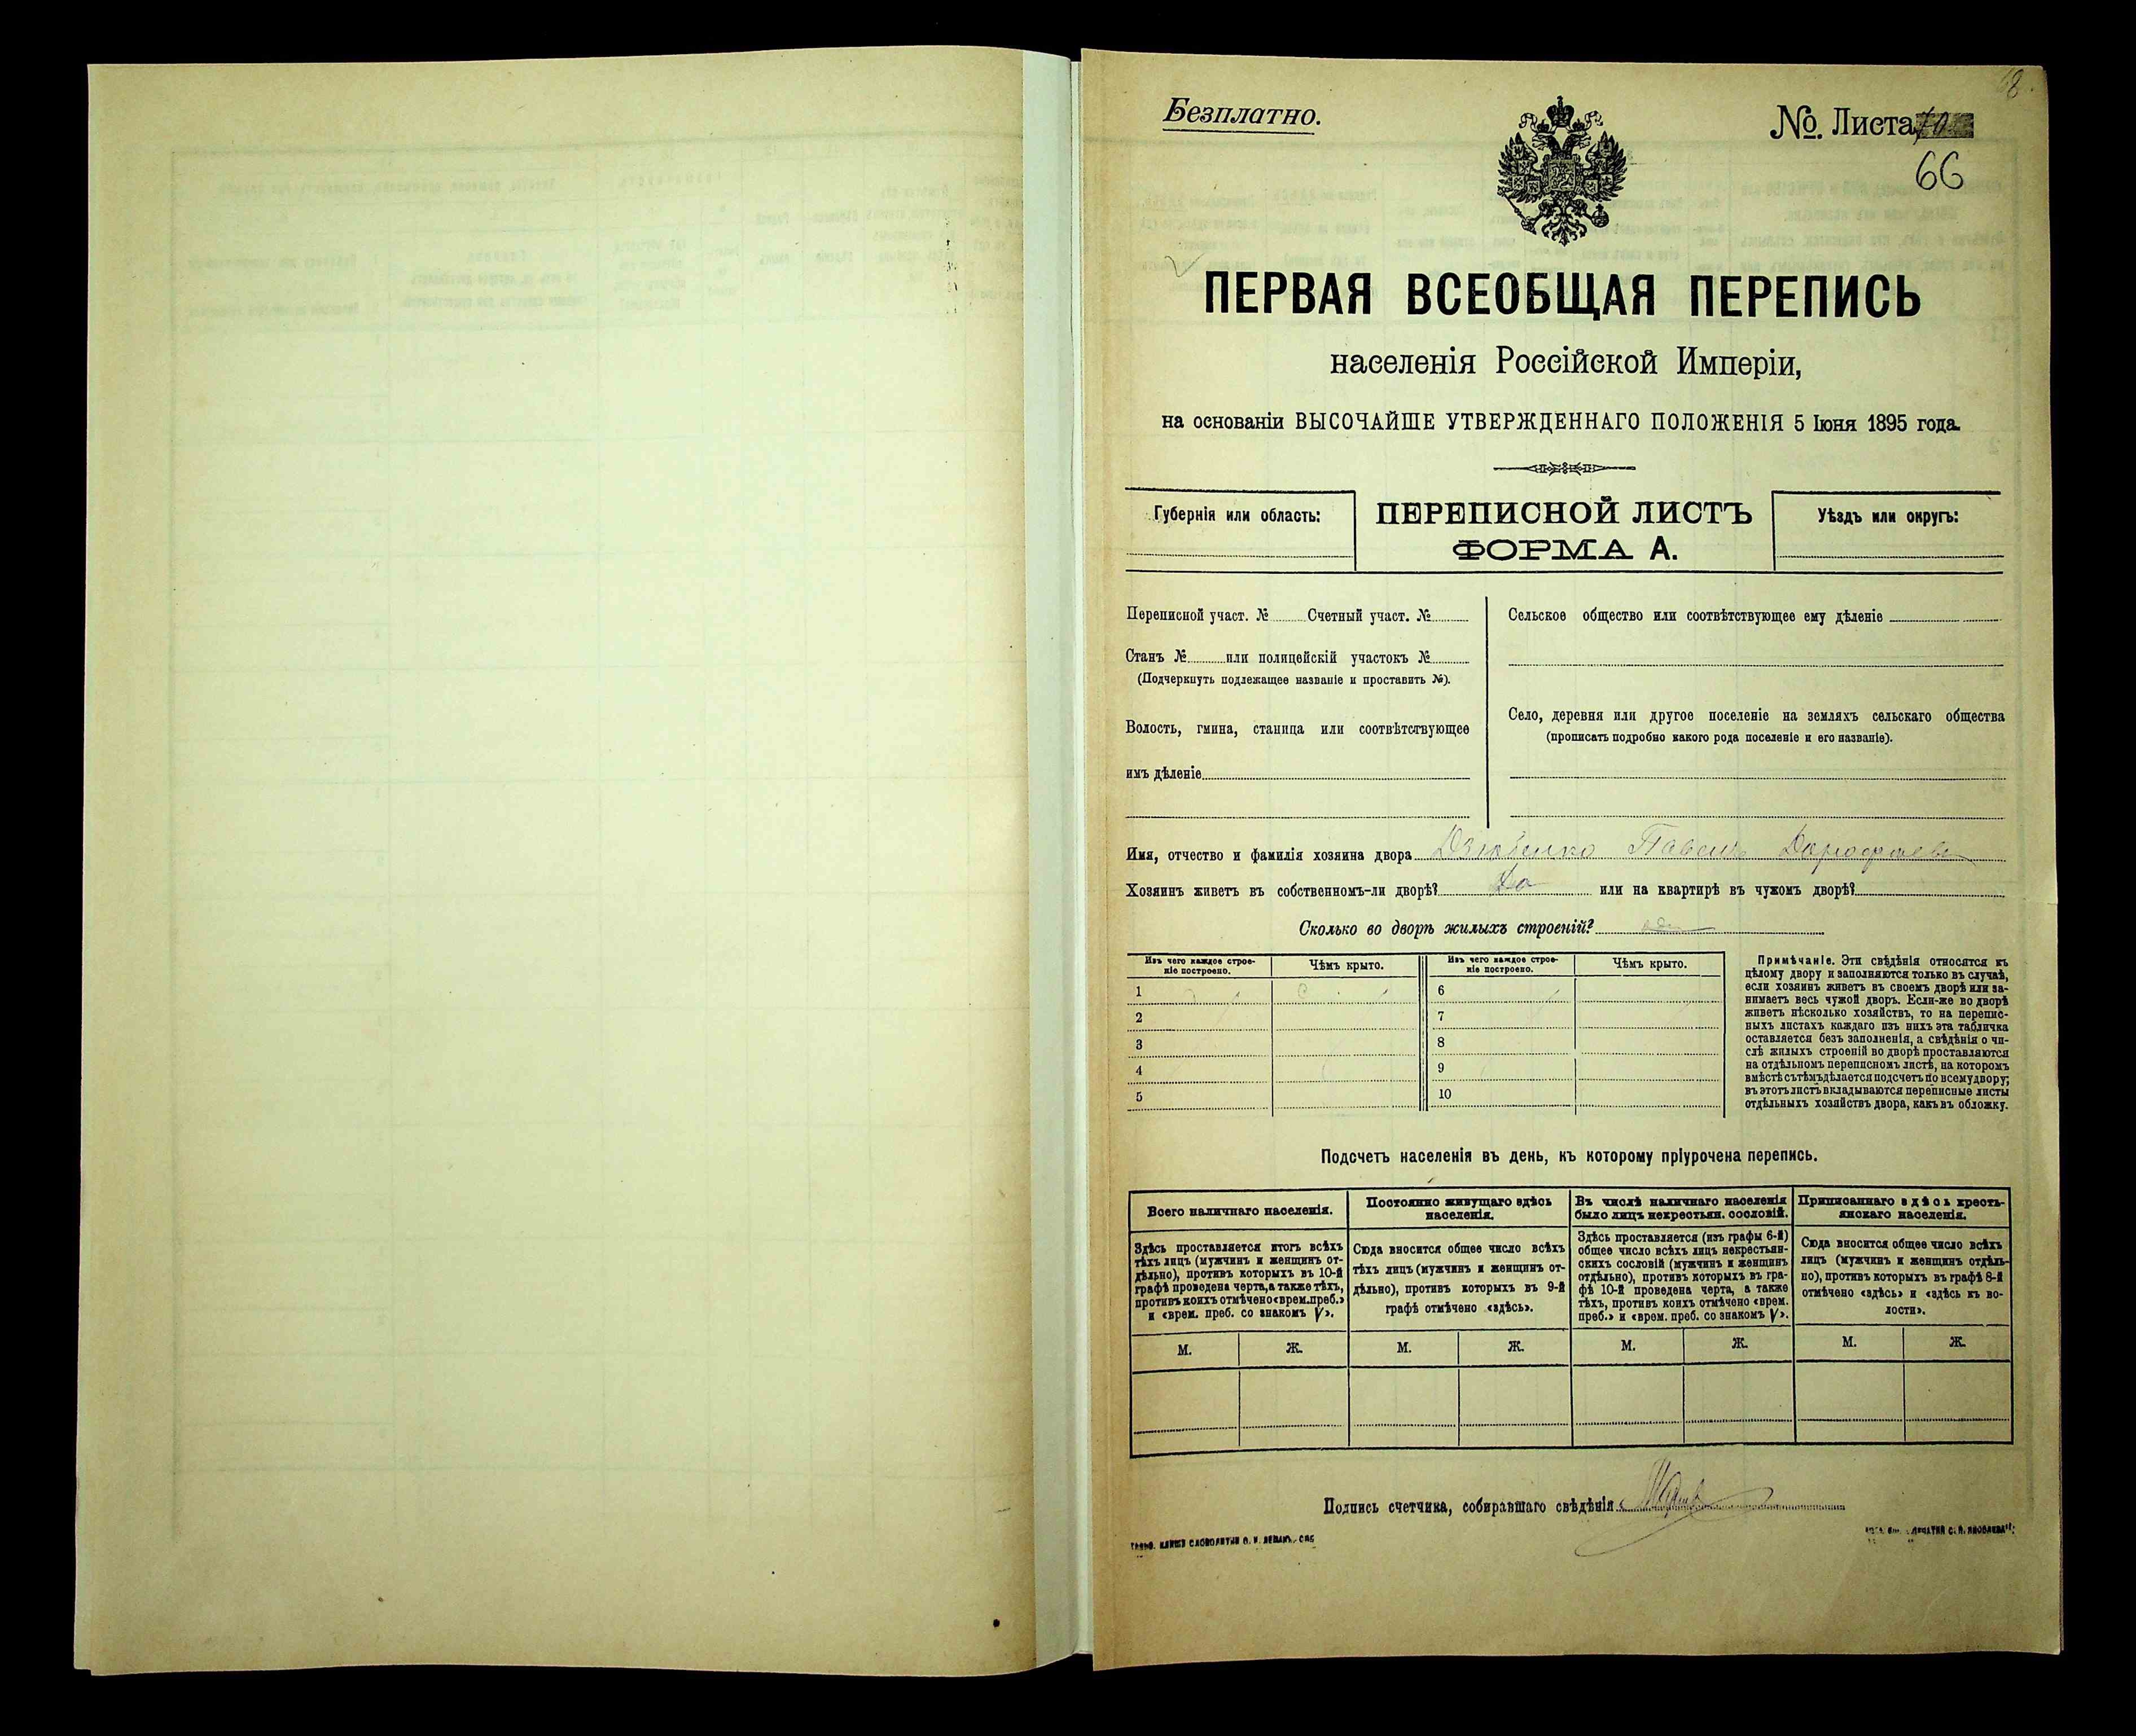 Безплатно.
№ Листа
66
ПЕРВАЯ ВСЕОБЩАЯ ПЕРЕПИСЬ
населенія Россійской Имперіи,
на основаніи ВЫСОЧАЙШЕ УТВЕРЖДЕННАГО ПОЛОЖЕНІЯ 5 Іюня 1895 года.
Губернія или область:
ПЕРЕПИСНОЙ ЛИСТЪ
ФОРМА А.
Уѣздъ или округъ:
Переписной участ. № Счетный участ. №
Станъ № или полицейскій участокъ №
(Подчеркнуть подлежащее названіе и проставить №).
Волость, гмина, станица или соотвѣтствующее
имъ дѣленіе
Сельское общество или соотвѣтствующее ему дѣленіе
Село, деревня или другое поселеніе на земляхъ сельскаго общества
(прописать подробно какого рода поселеніе и его названіе).
Имя, отчество и фамилія хозяина двора Павелъ
Хозяинъ живетъ въ собственномъ-ли дворѣ? Да или на квартирѣ въ чужомъ дворѣ?
Сколько во дворѣ жилыхъ строеній?
Изъ чего каждое строе-
ніе построено.
Чѣмъ крыто.
1
2
3
4
5
Изъ чего каждое строе-
ніе построено.
Чѣмъ крыто.
6
7
8
9
10
Примѣчаніе. Эти свѣдѣнія относятся къ
цѣлому двору и заполняются только въ случаѣ,
если хозяинъ живетъ въ своемъ дворѣ или за-
нимаетъ весь чужой дворъ. Если-же во дворѣ
живетъ нѣсколько хозяйствъ, то на перепис-
ныхъ листахъ каждаго изъ нихъ эта табличка
оставляется безъ заполненія, а свѣдѣнія о чи-
слѣ жилыхъ строеній во дворѣ проставляются
на отдѣльномъ переписномъ листѣ, на которомъ
вмѣстѣ съ тѣмъ дѣлается подсчетъ по всему двору;
въ этотъ листъ вкладываются переписные листы
отдѣльныхъ хозяйствъ двора, какъ въ обложку.
Подсчетъ населенія въ день, къ которому пріурочена перепись.
Всего наличнаго населенія.
Здѣсь проставляется итогъ всѣхъ
тѣхъ лицъ (мужчинъ и женщинъ от-
дѣльно), противъ которыхъ въ 10-й
графѣ проведена черта, а также тѣхъ,
противъ коихъ отмѣчено «врем. преб.»
и «врем. преб. со знакомъ V».
М. Ж.
Постоянно живущаго здѣсь
населенія.
Сюда вносится общее число всѣхъ
тѣхъ лицъ (мужчинъ и женщинъ от-
дѣльно), противъ которыхъ въ 9-й
графѣ отмѣчено «здѣсь».
М. Ж.
Въ числѣ наличнаго населенія
было лицъ некрестьян. сословій.
Здѣсь проставляется (изъ графы 6-й)
общее число всѣхъ лицъ некрестьян-
скихъ сословій (мужчинъ и женщинъ
отдѣльно), противъ которыхъ въ гра-
фѣ 10-й проведена черта, а также
тѣхъ, противъ коихъ отмѣчено «врем.
преб.» и «врем. преб. со знакомъ V».
М. Ж.
Приписаннаго здѣсь кресть-
янскаго населенія.
Сюда вносится общее число всѣхъ
лицъ (мужчинъ и женщинъ отдѣль-
но), противъ которыхъ въ графѣ 8-й
отмѣчено «здѣсь» и «здѣсь къ во-
лости».
М. Ж.
Подпись счетчика, собиравшаго свѣдѣнія